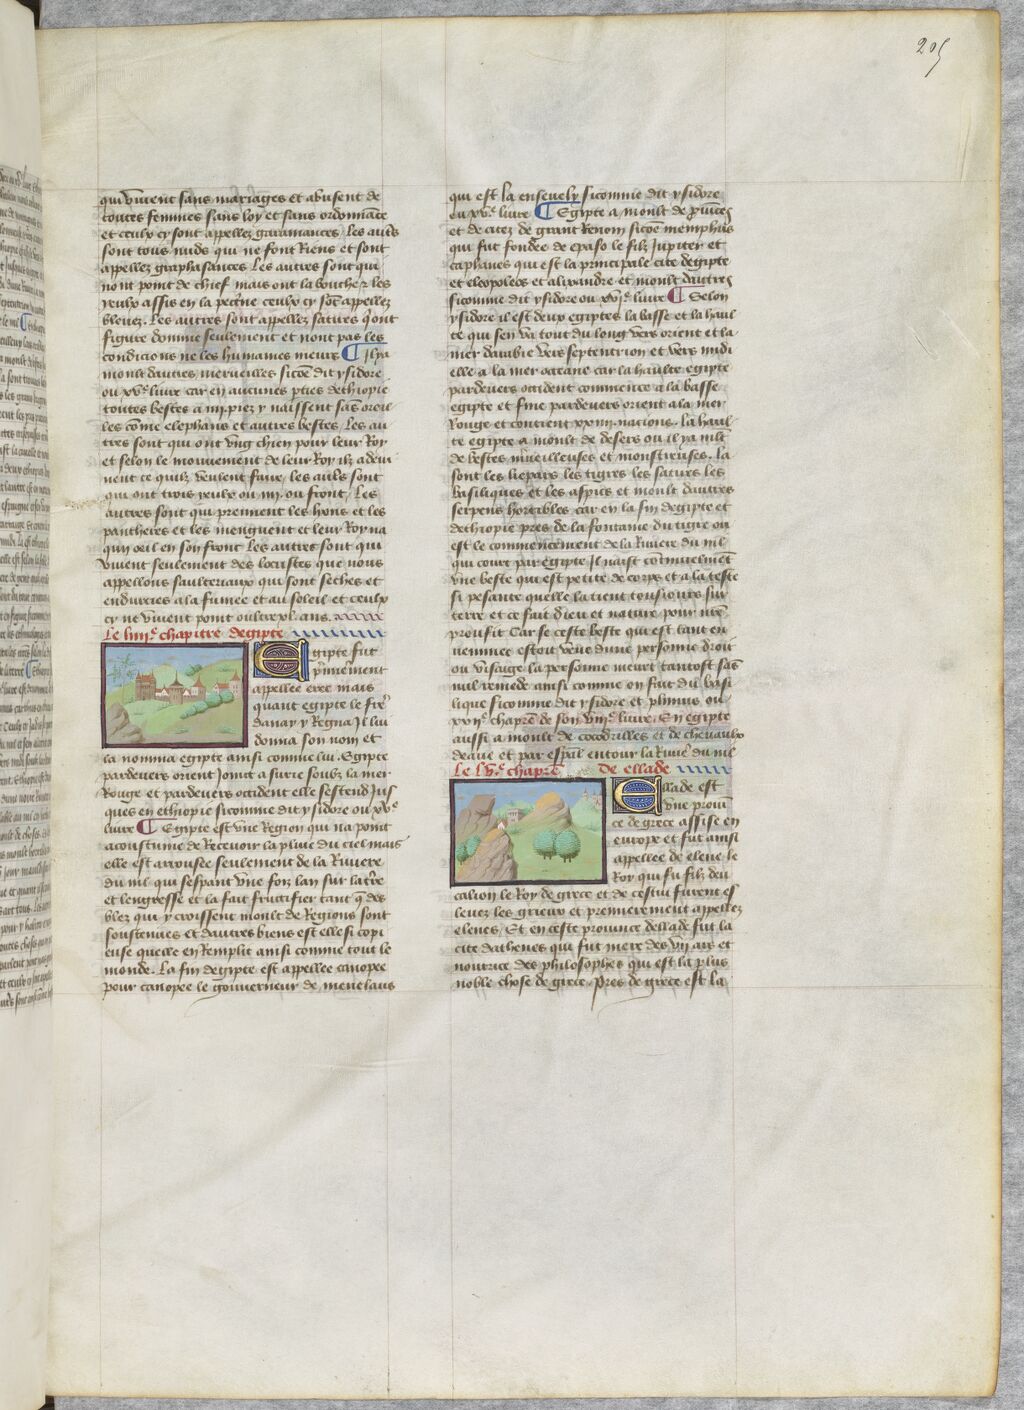 205
qui vivent sans mariages et abusent de
toutes femmes sans loy et sans ordonnāce
et ceulx cy sont appellez garamances. Les aut̄s
sont tous nuds qui ne font Riens et sont
appellez graphasances Les autres sont qui
nont point de chief mais ont la bouche et les
yeulx assis en la pect̄ne ceulx cy sōt appellez
blenez. Les autres sont appellez satires q̄ ont
figure domme seulement et nont pas les
condicions ne les humaines meurs ¶ Il ya
moult dautres merveilles sicōe dit ysidore
ou xvᵉ livre car en aucunes pties dethiopie
toutes bestes a iiij. piez y naissent sās oreil
les cōme elephans et autres bestes. Les au
tres sont qui ont ung chien pour leur Roy
et selon le mouvement de leur Roy ilz adevi
nent ce quilz veulent faire, les aut̄s sont
qui ont trois yeulx ou iiij. ou front, Les
autres sont qui prennent les lyons et les
pantheres et les menguent et leur Roy na
qun oeil en son front Les autres sont qui
vivent seulement des locustes que nous
appellons saultereaux qui sont seches et
endurcies a la fumee et au soleil et ceulx
cy ne vivent point oultre xl. ans.
Le liiiᵉ chapitre degipte
Egipte fut
p̄mierement
appellee eree mais
quant egipte le frē
danay y Regna Il lui
donna son nom et
la nomma egipte ainsi comme lui. Egipte
pardevers orient Joinct a surie soubz la mer
Rouge et pardevers occident elle sestend Jus
ques en ethiopie sicomme dit ysidore ou xvᵉ
livre ¶ Egipte est une Region qui na point
acoustume de Recevoir la pluie du ciel mais
elle est arrousee seulement de la Riviere
du nil qui sespant une foiz lan sur la t̄re
et lengresse et la fait fructifier tant q̄ des
blez qui y croissent moult de Regions sont
soustenues et dautres biens est elle si copi
euse quelle en Remplit ainsi comme tout le
monde. La fin degipte est appellee canopee
pour canopee le gouverneur de menelaus
qui est la ensevely sicomme dit ysidore
ou xvᵉ livre ¶ Egipte a moult de p̄vices
et de citez de grant Renom sicōe memphis
qui fut fondee de epafo le filz Jupiter et
taphanes qui est la principale cite degipte
et eleopoleos et alixandre et moult dautres
sicomme dit ysidore ou xvᵉ livre ¶ Selon
ysidore il est deux egiptes la basse et la haul
te qui sen va tout du long vers orient et la
mer darabie vers septentrion et vers midi
elle a la mer occeane car la haulte egipte
pardevers occident commence a la basse
egipte et fine pardevers orient a la mer
Rouge et contient xxiiij. nacions. la haul
te egipte a moult de desers ou il ya mlt̄
de bestes m̄veilleuses et monstreuses. la
sont les liepars les tigres les satires les
basiliques et les aspics et moult dautres
serpens horribles car en la fin degipte et
dethiopie pres de la fontaine du tigre ou
est le commencement de la Riviere du nil
qui court par egipte Il naist cōtinuelmēt
une beste qui est petite de corps et a la teste
si pesante quelle la tient tousiours sur
terre et ce fait dieu et nature pour nr̄e
prouffit Car se ceste beste qui est tant en
venimee estoit veue dune personne droit
ou visaige la personne meurt tantost sās
nul remede ainsi comme on fait du basi
lique sicomme dit ysidore et plinius ou
xxiiᵉ chapr̄e de son viiiᵉ livre. En egipte
aussi a moult de cocodrilles et de chevaulx
deaue et par esp̄al entour la Riviē du nil
Le lvᵉ chapr̄e de ellade
Ellade est
une provī
ce de grece assise en
europe et fut ainsi
appellee de elene le
Roy qui fu filz deu
calion le Roy de grece et de cestui furent es
levez les grieux et premierement appellez
elenes, Et en ceste province dellade fut la
cite dathenes qui fut mere des vij ars et
nourrice des philosophes qui est la plus
noble chose de grece, Pres de grece est la